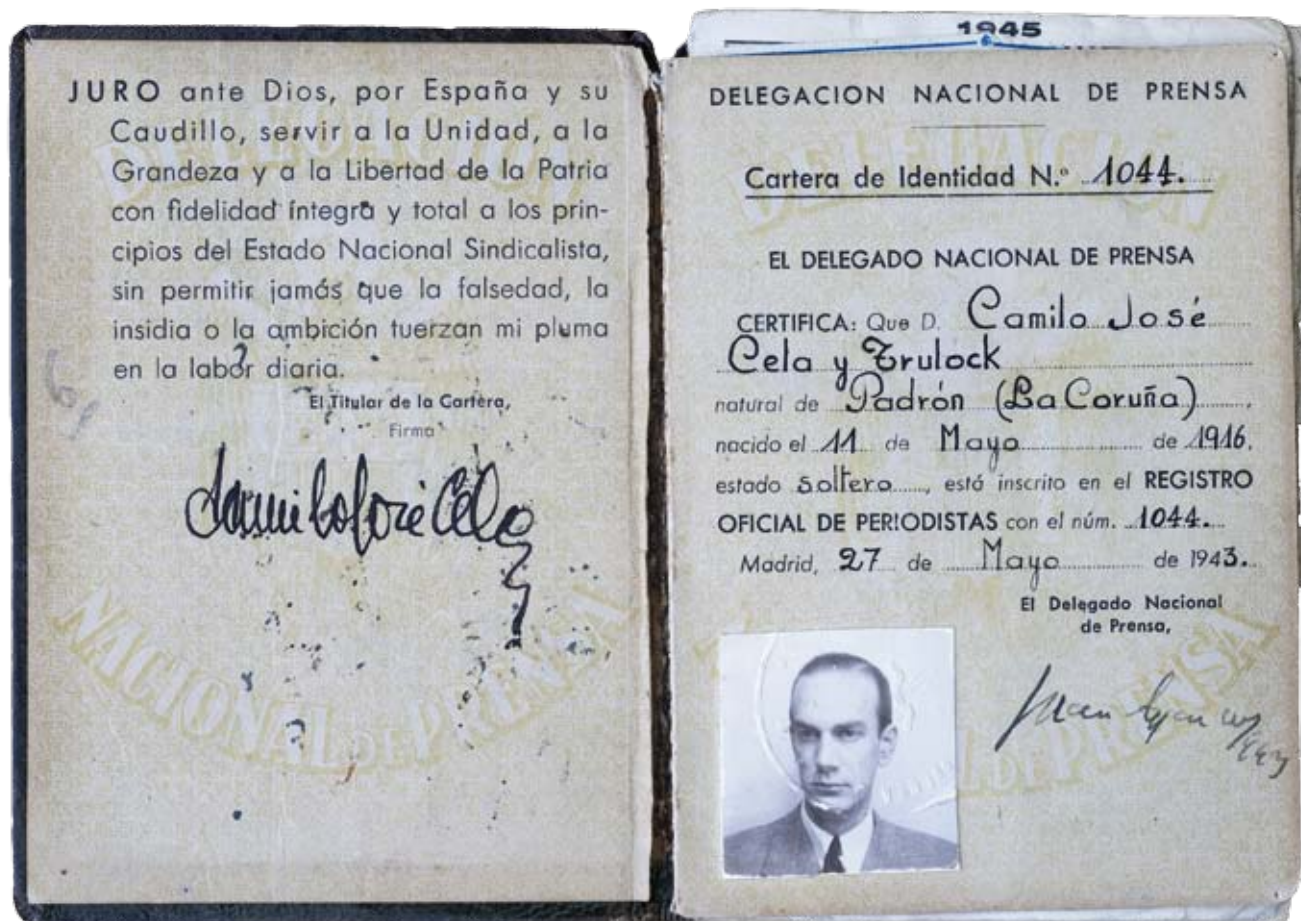 JURO ante Dios, por España y su
Caudillo, servir a la Unidad, a la
Grandeza y a la Libertad de la Patria
con fidelidad íntegra y total a los prin-
cipios del Estado Nacional Sindicalista,
sin permitir jamás que la falsedad, la
insidia o la ambición tuerzan mi pluma
en la labor diaria.
El Titular de la Cartera,
Firma
Camilo José Cela
NACIONAL DE PRENSA
1945
DELEGACION NACIONAL DE PRENSA
Cartera de Identidad N.º 1044.
EL DELEGADO NACIONAL DE PRENSA
CERTIFICA: Que D. Camilo José
Cela y Trulock
natural de Padrón (La Coruña)
nacido el 11 de Mayo de 1916,
estado soltero, está inscrito en el REGISTRO
OFICIAL DE PERIODISTAS con el núm. 1044.
Madrid, 27 de Mayo de 1943.
El Delegado Nacional
de Prensa,